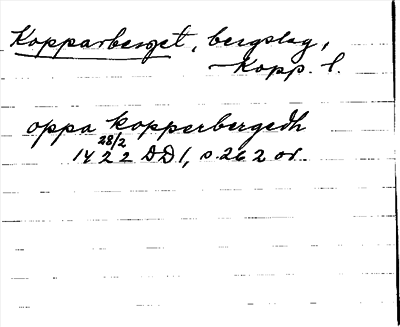 Kopparberget, bergslag,
Kopp. l.
oppa kopperbergedh
28/2
1422 DD1, s. 262 or.